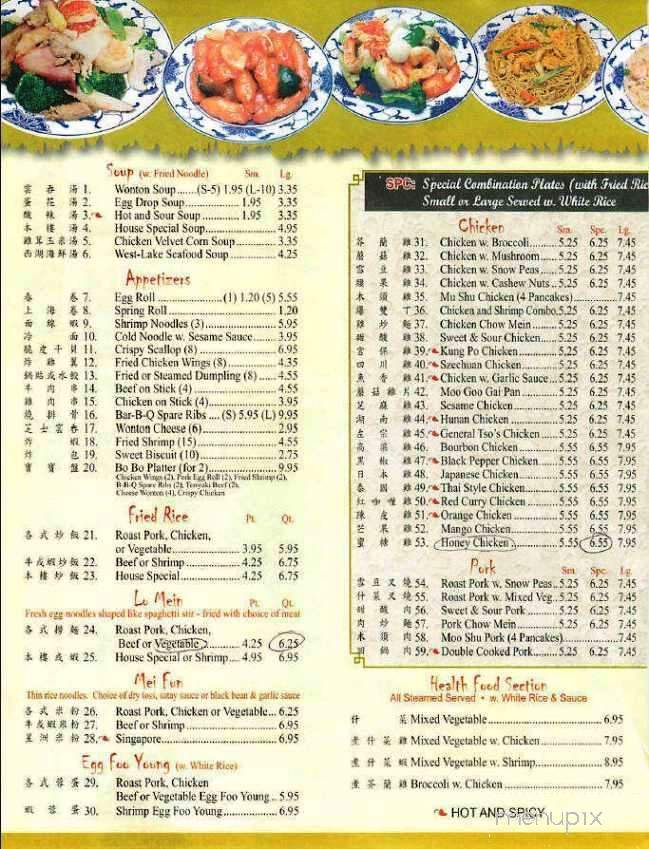 Soup (w. Fried Noodle) Sm. Lg.
雲吞湯 1. Wonton Soup ......(S-5) 1.95 (L-10) 3.35
蛋花湯 2. Egg Drop Soup .............. 1.95 3.35
酸辣湯 3. Hot and Sour Soup ........... 1.95 3.35
本樓湯 4. House Special Soup.................. 4.95
雞茸玉米湯 5. Chicken Velvet Corn Soup........... 3.35
西湖海鮮湯 6. West-Lake Seafood Soup ............ 4.25
Appetizers
春卷 7. Egg Roll ....................(1) 1.20 (5) 5.55
上海卷 8. Spring Roll ............................ 1.20
面線蝦 9. Shrimp Noodles (3)..................... 5.95
冷面 10. Cold Noodle w. Sesame Sauce....... 3.95
脆皮干貝 11. Crispy Scallop (8) .................... 6.95
炸雞翼 12. Fried Chicken Wings (8)............. 4.35
鍋貼或水餃 13. Fried or Steamed Dumpling (8) ..... 4.55
牛肉串 14. Beef on Stick (4)...................... 4.55
雞肉串 15. Chicken on Stick (4)................... 3.95
燒排骨 16. Bar-B-Q Spare Ribs .... (S) 5.95 (L) 9.95
芝士雲吞 17. Wonton Cheese (6)...................... 2.95
炸蝦 18. Fried Shrimp (15)...................... 4.55
炸包 19. Sweet Biscuit (10)..................... 2.75
寶寶盤 20. Bo Bo Platter (for 2)................... 9.95
Chicken Wings (2), Pork Egg Roll (2), Fried Shrimp (2),
B-B-Q Spare Ribs (2), Teriyaki Beef (2),
Cheese Wonton (4), Crispy Chicken
Fried Rice Pt. Qt.
各式炒飯 21. Roast Pork, Chicken,
or Vegetable................... 3.95 5.95
牛或蝦炒飯 22. Beef or Shrimp................ 4.25 6.75
本樓炒飯 23. House Special................. 4.25 6.75
Lo Mein Pt. Qt.
Fresh egg noodles shaped like spaghetti stir - fried with choice of meat
各式撈麵 24. Roast Pork, Chicken,
Beef or Vegetable .......... 4.25 6.25
本樓或蝦 25. House Special or Shrimp.... 4.95 6.95
Mei Fun
Thin rice noodles. Choice of dry toss, satay sauce or black bean & garlic sauce
各式米粉 26. Roast Pork, Chicken or Vegetable... 6.25
牛或蝦米粉 27. Beef or Shrimp.......................... 6.95
星洲米粉 28. Singapore................................ 6.95
Egg Foo Young (w. White Rice)
各式蓉蛋 29. Roast Pork, Chicken
Beef or Vegetable Egg Foo Young .. 5.95
蝦蓉蛋 30. Shrimp Egg Foo Young................. 6.95
SPC: Special Combination Plates (with Fried Ric
Small or Large Served w. White Rice
Chicken Sm. Spc. Lg.
芥蘭雞 31. Chicken w. Broccoli........... 5.25 6.25 7.45
蘑菇雞 32. Chicken w. Mushroom ...... 5.25 6.25 7.45
雪豆雞 33. Chicken w. Snow Peas ...... 5.25 6.25 7.45
腰果雞 34. Chicken w. Cashew Nuts .. 5.25 6.25 7.45
木須雞 35. Mu Shu Chicken (4 Pancakes)................ 7.45
爆雙丁 36. Chicken and Shrimp Combo. 5.25 6.25 7.45
雞炒麵 37. Chicken Chow Mein .......... 5.25 6.25 7.45
甜酸雞 38. Sweet & Sour Chicken....... 5.25 6.25 7.45
宮保雞 39. Kung Po Chicken ............ 5.25 6.25 7.45
四川雞 40. Szechuan Chicken ........... 5.25 6.25 7.45
魚香雞 41. Chicken w. Garlic Sauce ... 5.25 6.25 7.45
蘑菇雞片 42. Moo Goo Gai Pan ............. 5.25 6.25 7.45
芝麻雞 43. Sesame Chicken................ 5.25 6.25 7.45
湖南雞 44. Hunan Chicken ................ 5.25 6.25 7.45
左宗雞 45. General Tso's Chicken ...... 5.25 6.25 7.45
高粱雞 46. Bourbon Chicken.............. 5.55 6.55 7.95
黑椒雞 47. Black Pepper Chicken....... 5.55 6.55 7.95
日本雞 48. Japanese Chicken............. 5.55 6.55 7.95
泰國雞 49. Thai Style Chicken........... 5.55 6.55 7.95
紅咖喱雞 50. Red Curry Chicken........... 5.55 6.55 7.95
陳皮雞 51. Orange Chicken .............. 5.55 6.55 7.95
芒果雞 52. Mango Chicken................ 5.55 6.55 7.95
蜜糖雞 53. Honey Chicken ............... 5.55 6.55 7.95
Pork Sm. Spc. Lg.
雪豆叉燒 54. Roast Pork w. Snow Peas.. 5.25 6.25 7.45
什菜叉燒 55. Roast Pork w. Mixed Veg.. 5.25 6.25 7.45
甜酸肉 56. Sweet & Sour Pork............ 5.25 6.25 7.45
肉炒麵 57. Pork Chow Mein .............. 5.25 6.25 7.45
木須肉 58. Moo Shu Pork (4 Pancakes)................... 7.45
回鍋肉 59. Double Cooked Pork......... 5.25 6.25 7.45
Health Food Section
All Steamed Served • w. White Rice & Sauce
什菜 Mixed Vegetable ........................... 6.95
煮什菜雞 Mixed Vegetable w. Chicken ............... 7.95
煮什菜蝦 Mixed Vegetable w. Shrimp................. 8.95
煮芥蘭雞 Broccoli w. Chicken ......................... 7.95
HOT AND SPICY
menupix